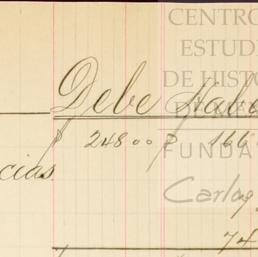 CENTRO
ESTUDI
DE HISTO
Debe Habe
$ 248 00 $ 166
FUNDA
cias
Carlos
74